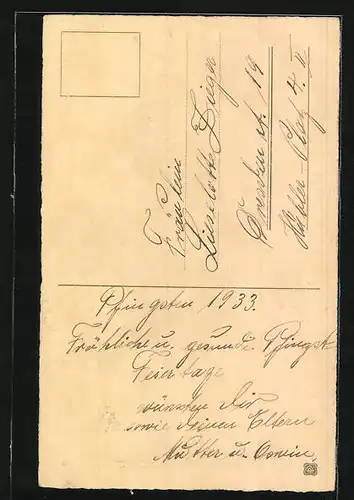 Pfingsten, 1933.
Fröhliche u. gesunde Pfingst
Feiertage
wünschen Dir
sowie deinen Eltern
Mutter u. Erwin.
Fräulein
Liselotte
Dresden A. 19
Platz 4. II